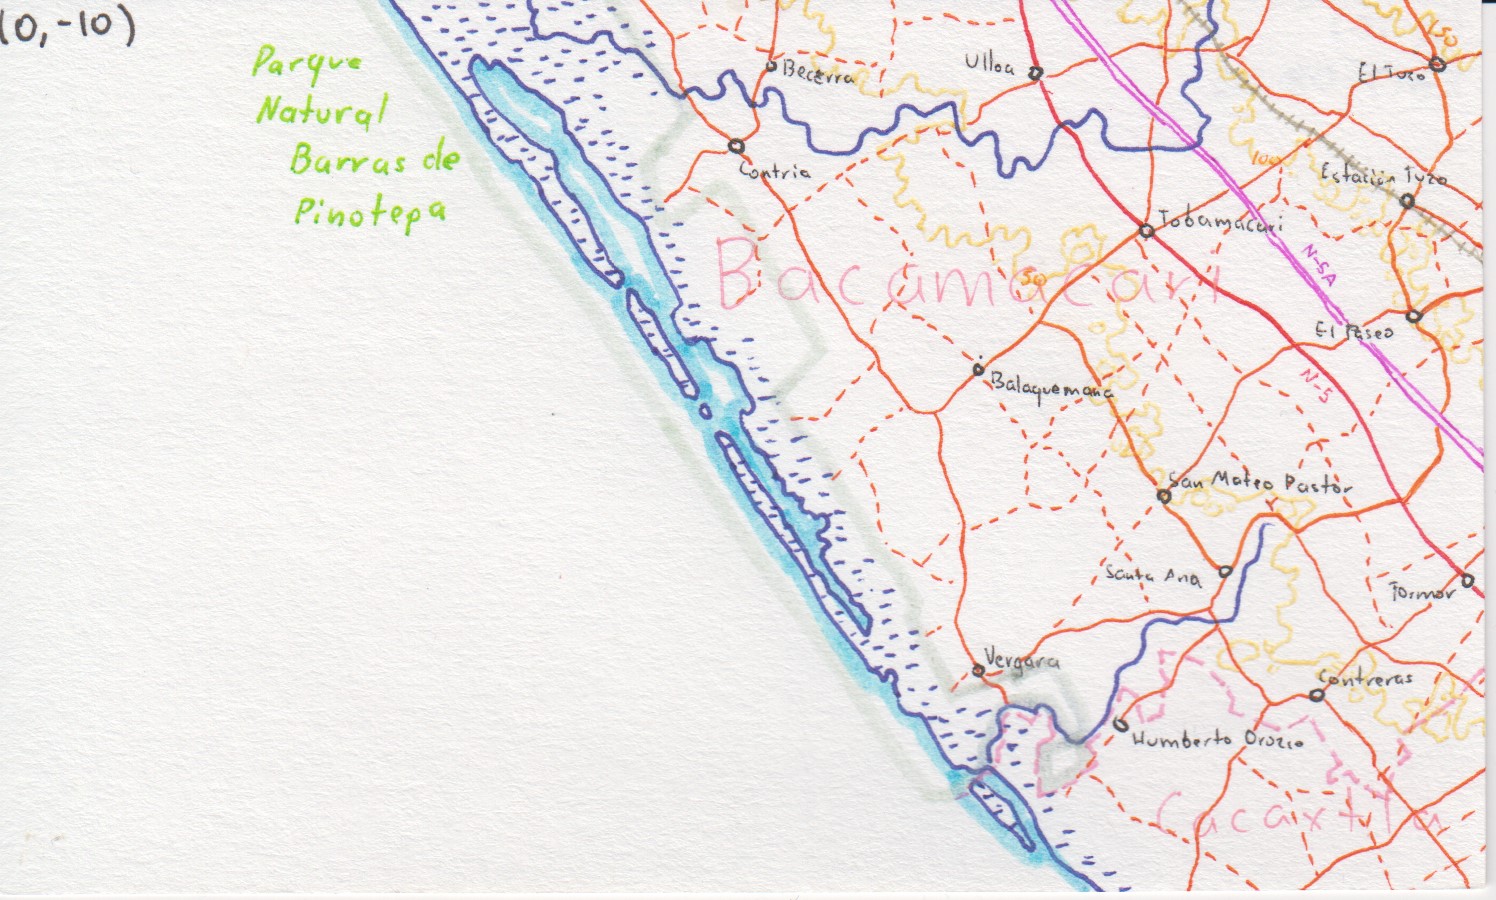 (0,-10)
Parque
Natural
Barras de
Pinotepa
Becerra
Ulloa
150
El Tuzo
Contria
100
Estación Tuzo
Tobamacari
Bacamacari
50
N-5A
El Paseo
Balaquemana
N-5
San Mateo Pastor
Santa Ana
Tormor
Vergara
Contreras
Humberto Orozco
Cacaxtla